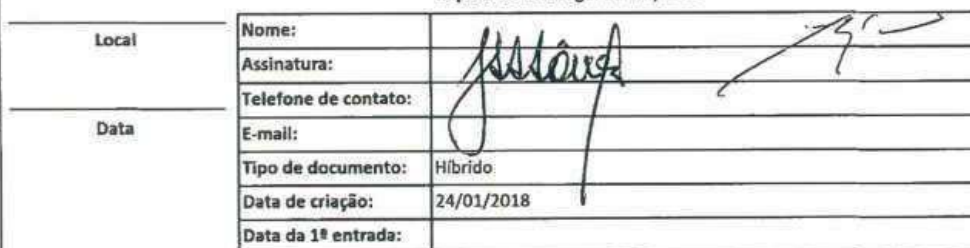 Local
Data
Nome:
Assinatura:
Telefone de contato:
E-mail:
Tipo de documento: Híbrido
Data de criação: 24/01/2018
Data da 1ª entrada: